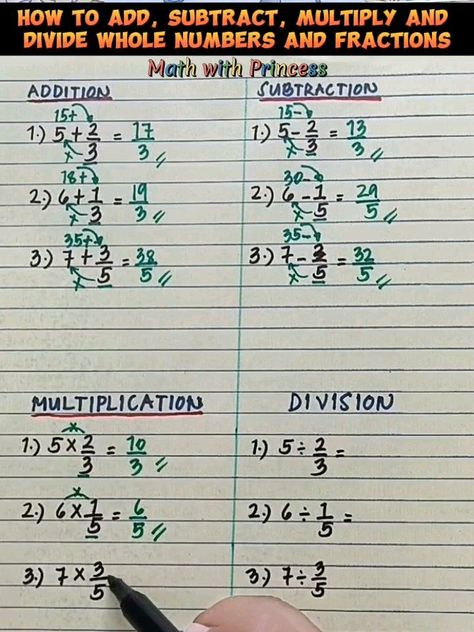 HOW TO ADD, SUBTRACT, MULTIPLY AND
DIVIDE WHOLE NUMBERS AND FRACTIONS
Math with Princess
ADDITION
15+
1.) 5 + 2/3 = 17/3
x
18+
2.) 6 + 1/3 = 19/3
x
35+
3.) 7 + 3/5 = 38/5
x
SUBTRACTION
15-
1.) 5 - 2/3 = 13/3
x
30-
2.) 6 - 1/5 = 29/5
x
35-
3.) 7 - 3/5 = 32/5
x
MULTIPLICATION
x
1.) 5 x 2/3 = 10/3
x
2.) 6 x 1/5 = 6/5
3.) 7 x 3/5
DIVISION
1.) 5 ÷ 2/3 =
2.) 6 ÷ 1/5 =
3.) 7 ÷ 3/5